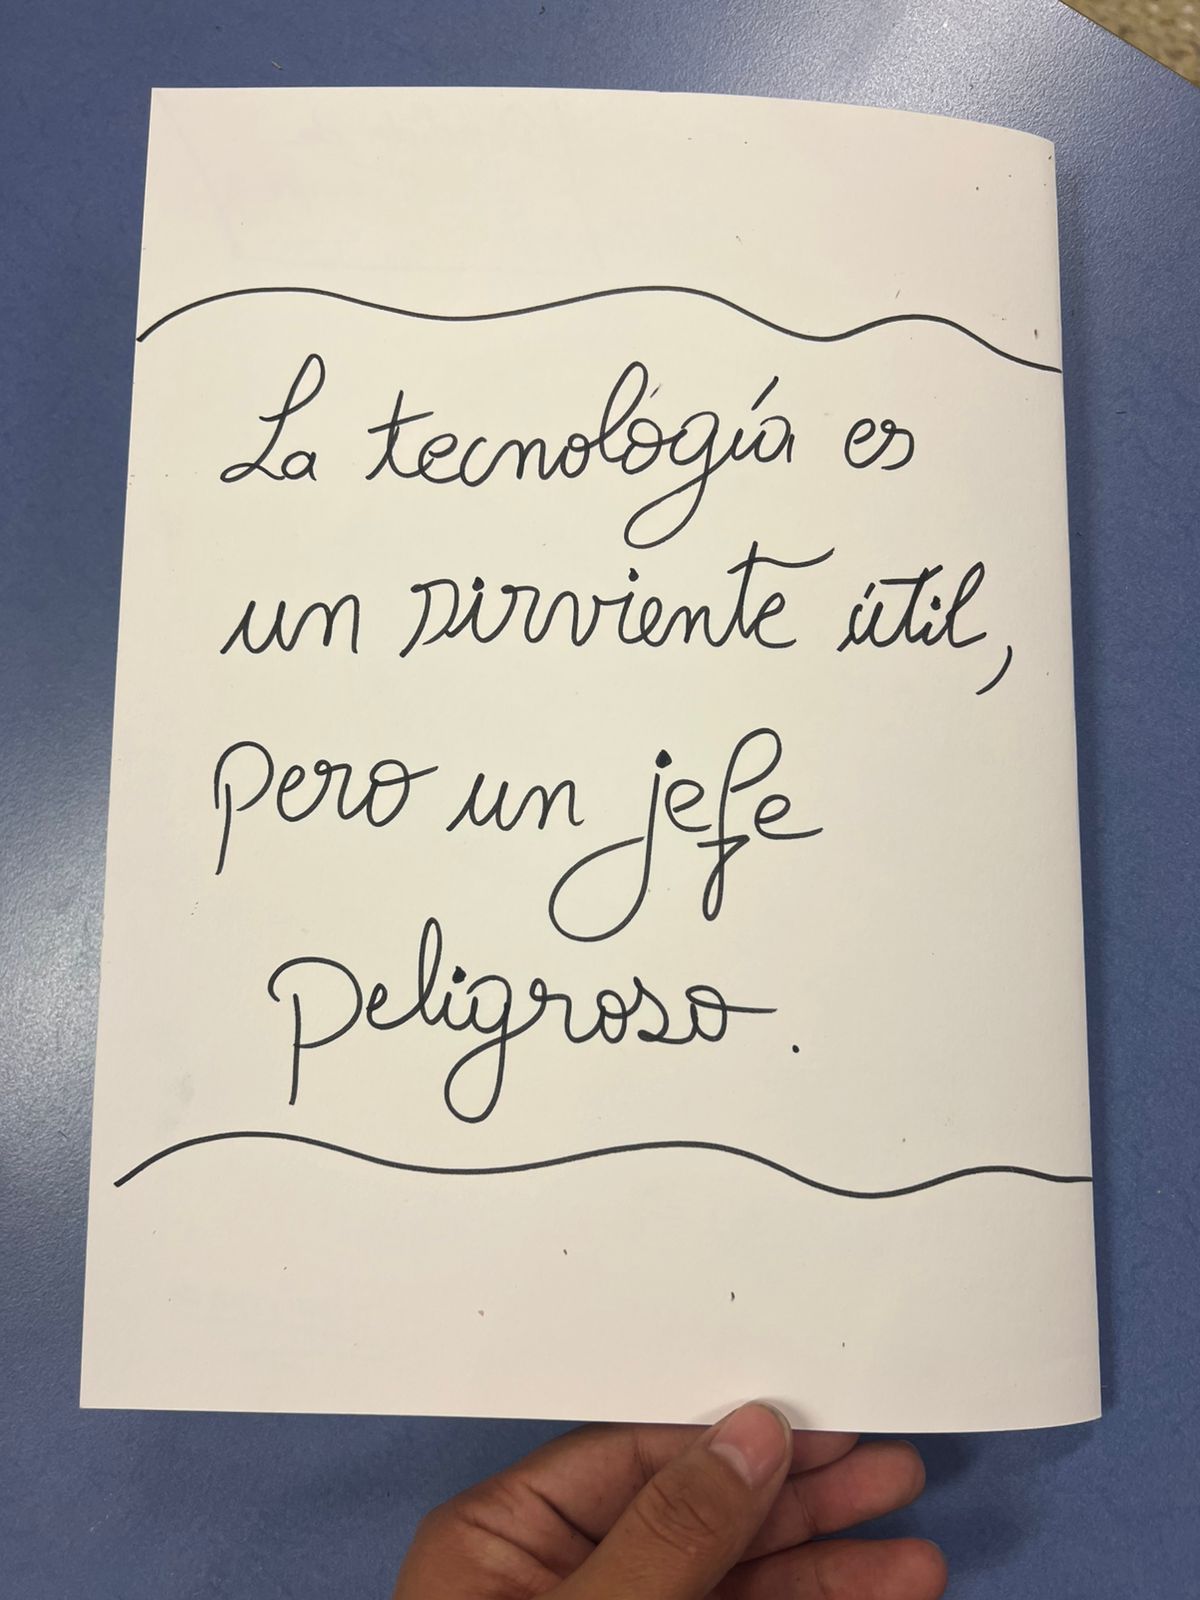 La tecnológía es
un sirviente útil,
pero un jefe
peligroso.